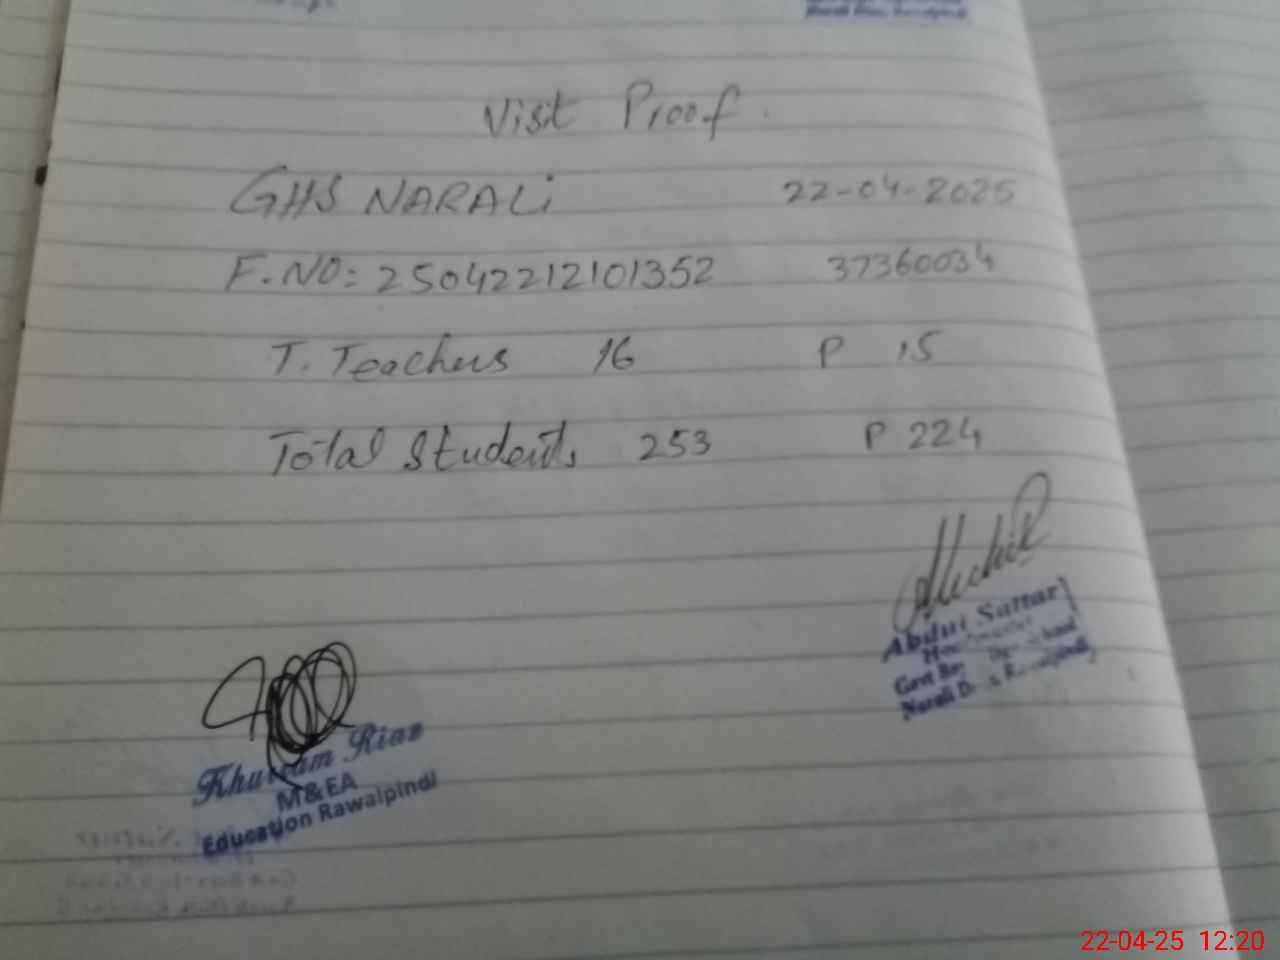 Visit Proof.
GHS NARALi 22-04-2025
F.NO: 25042212101352 37360034
T. Teachers 16 P 15
Total Students 253 P 224
Abdul Sattar
Govt
Narali Rawalpindi
Khurram Riaz
M&EA
Education Rawalpindi
22-04-25 12:20